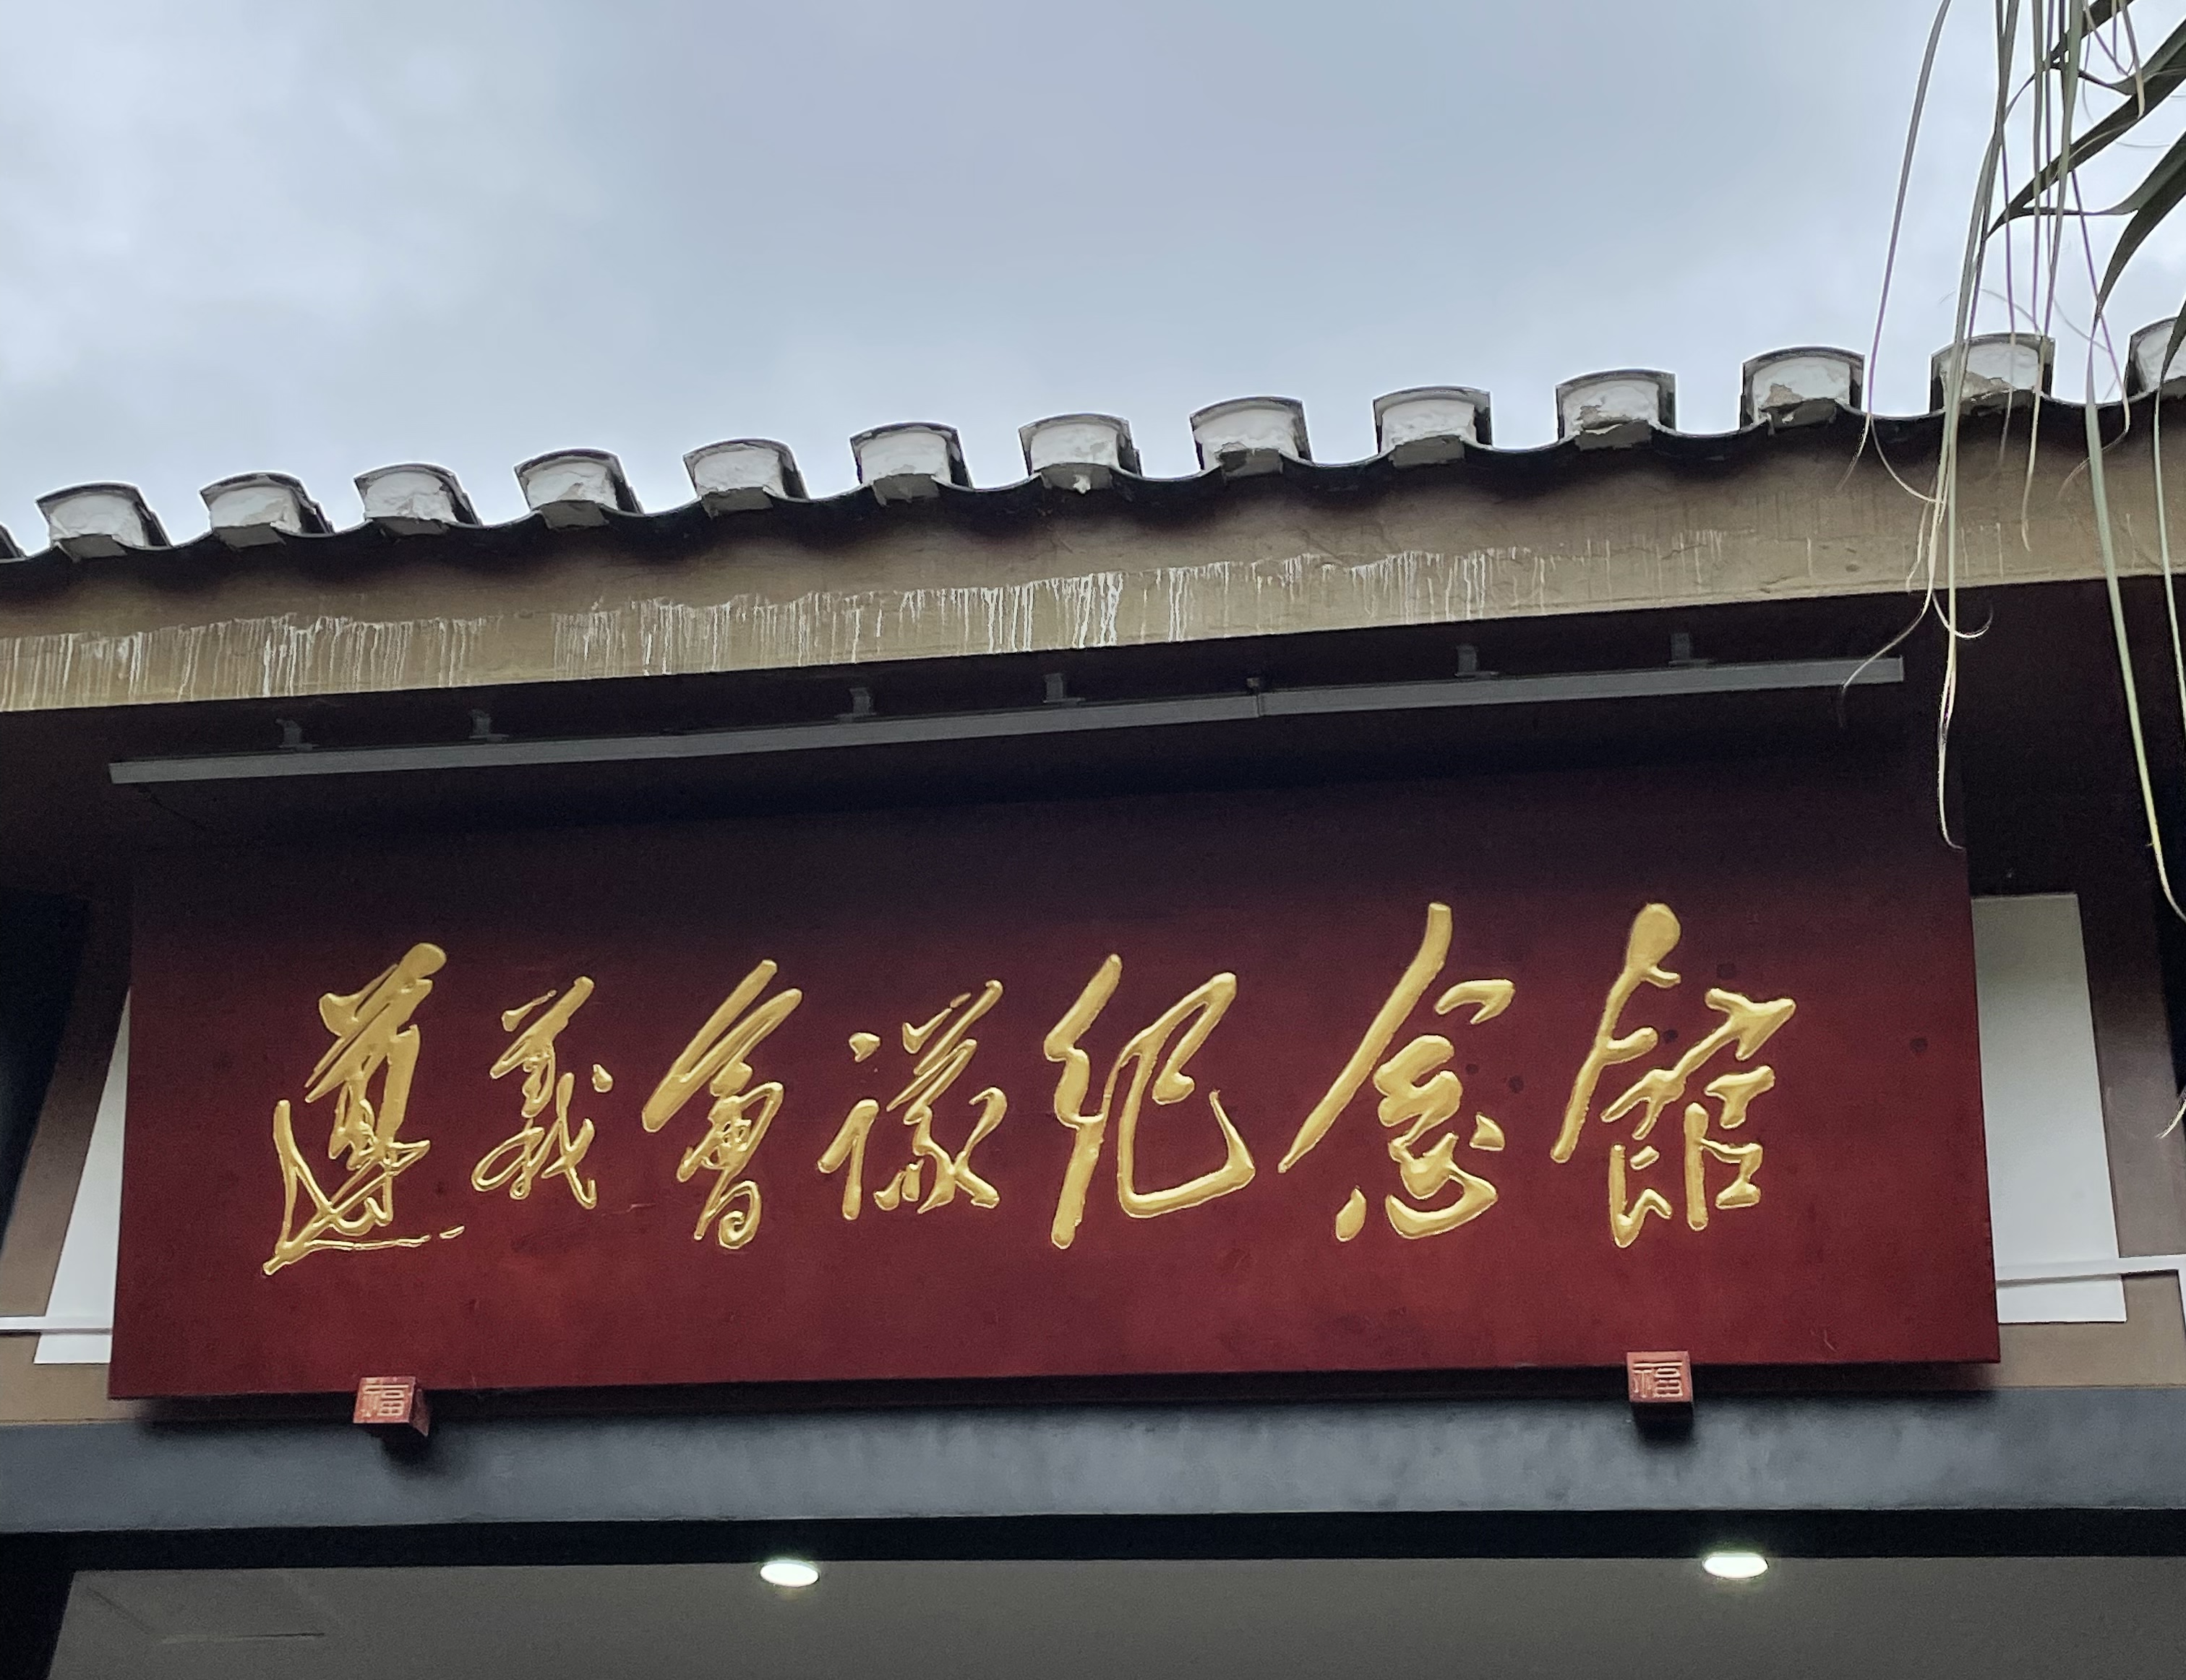 遵義會議紀念館
福
福